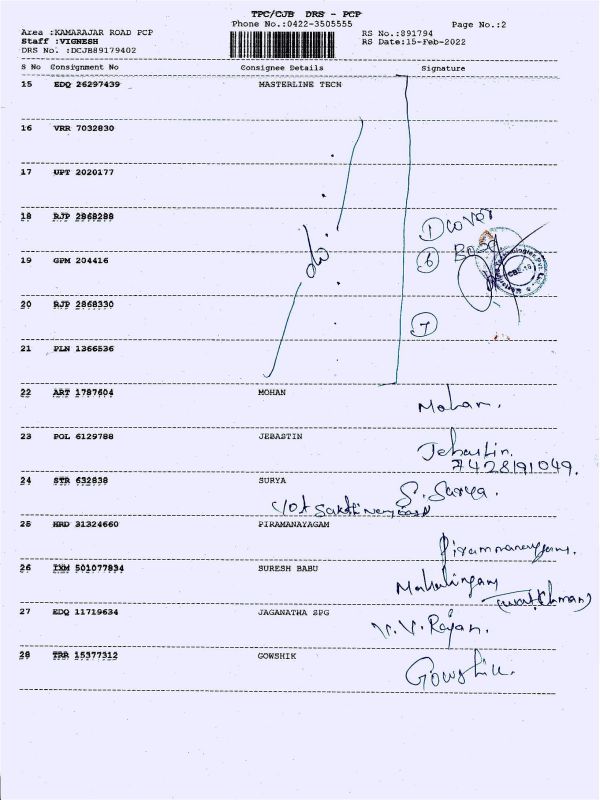 TPC/CJB DRS - PCP
Phone No.:0422-3505555 Page No.:2
Area :KAMARAJAR ROAD PCP RS No.:891794
Staff :VIGNESH RS Date:15-Feb-2022
DRS No. :DCJB89179402
S No Consignment No Consignee Details Signature
15 EDQ 26297439 MASTERLINE TECN
16 VRR 7032830
17 UPT 2020177
18 RJP 2868288
do
1 cover
19 GPM 204416
6 Bag
CBE-15
20 RJP 2868330
7
21 PLN 1366536
22 ART 1787604 MOHAN
Mohan.
23 POL 6129788 JEBASTIN
Jebastin.
7428191049.
24 STR 632838 SURYA
S. Surya.
25 HRD 31324660 PIRAMANAYAGAM
Piramnanayagam.
26 IXM 501077834 SURESH BABU
Mahalingam
(watchman)
27 EDQ 11719634 JAGANATHA SPG
V.V. Rajan.
28 TRR 15377312 GOWSHIK
Gowshik.